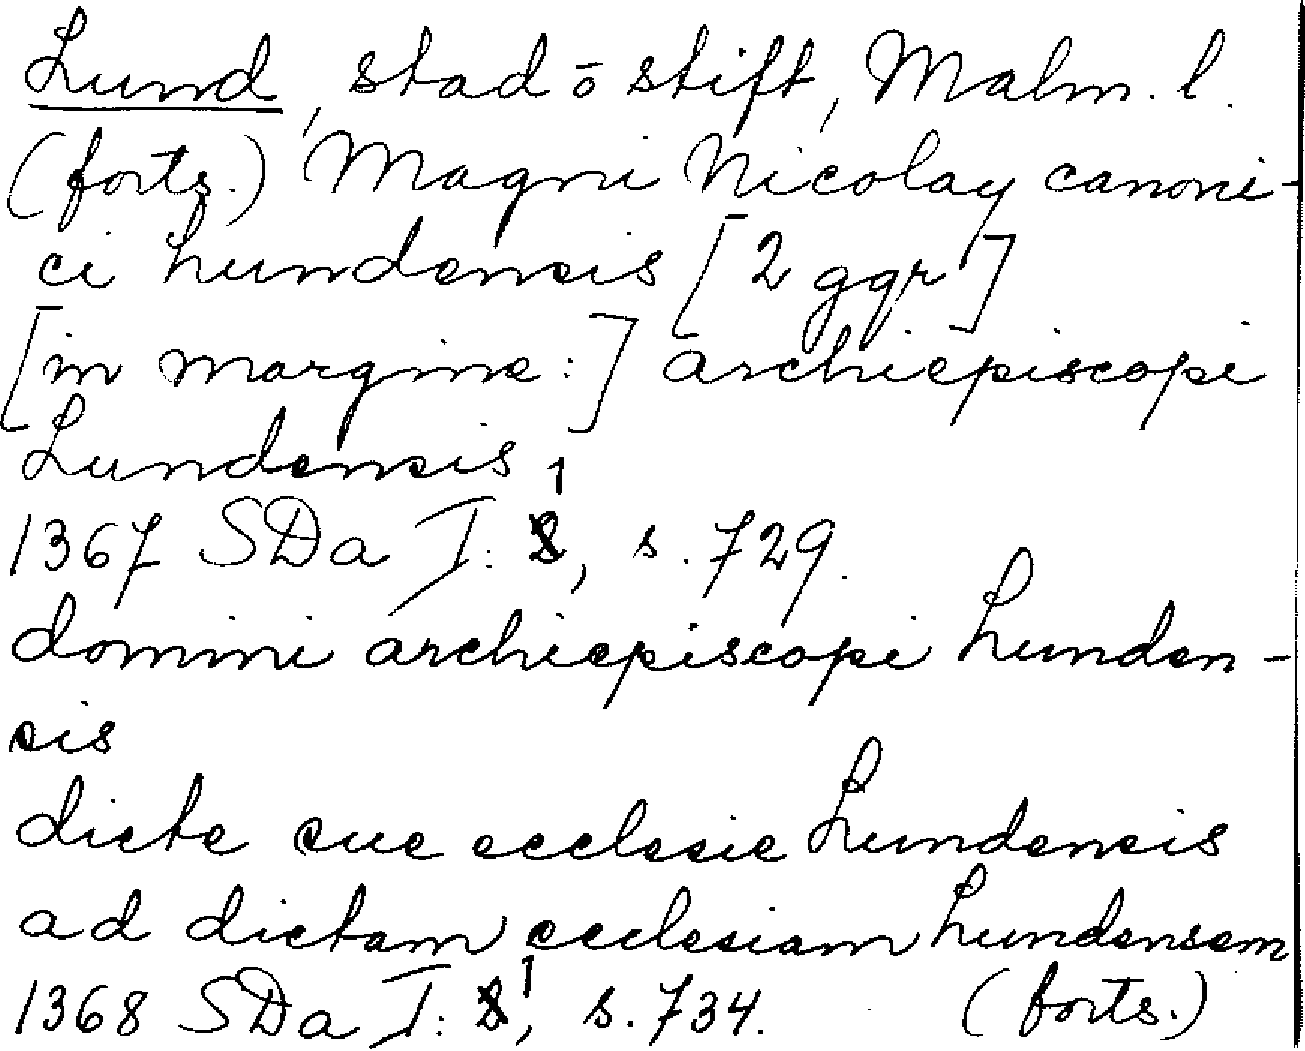 Lund, stad o stift, Malm. l.
(forts.) Magni Nicolay canoni-
ci Lundensis [2 ggr]
[in margine:] archiepiscopi
Lundensis
1367 SDa I: 1, s. 729.
domini archiepiscopi Lunden-
sis
dicte sue ecclesie Lundensis
ad dictam ecclesiam Lundensem
1368 SDa I: 1, s. 734. (forts.)